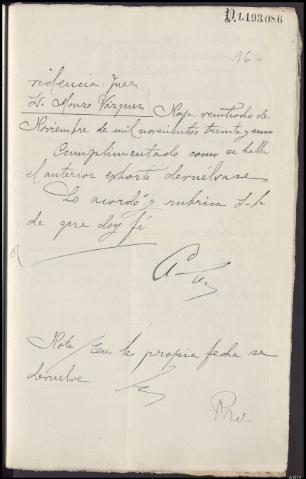 D1.193.086
16
videncia. Juez
Sr. Alonso Vázquez / Noya, veintiocho de
Noviembre de mil novecientos treinta y uno
Cumplimentado como se halla
el anterior exhorto devuélvase
Lo acordó y rubrica S.Sª
de que doy fé
Nota / En la propia fecha se
devuelve